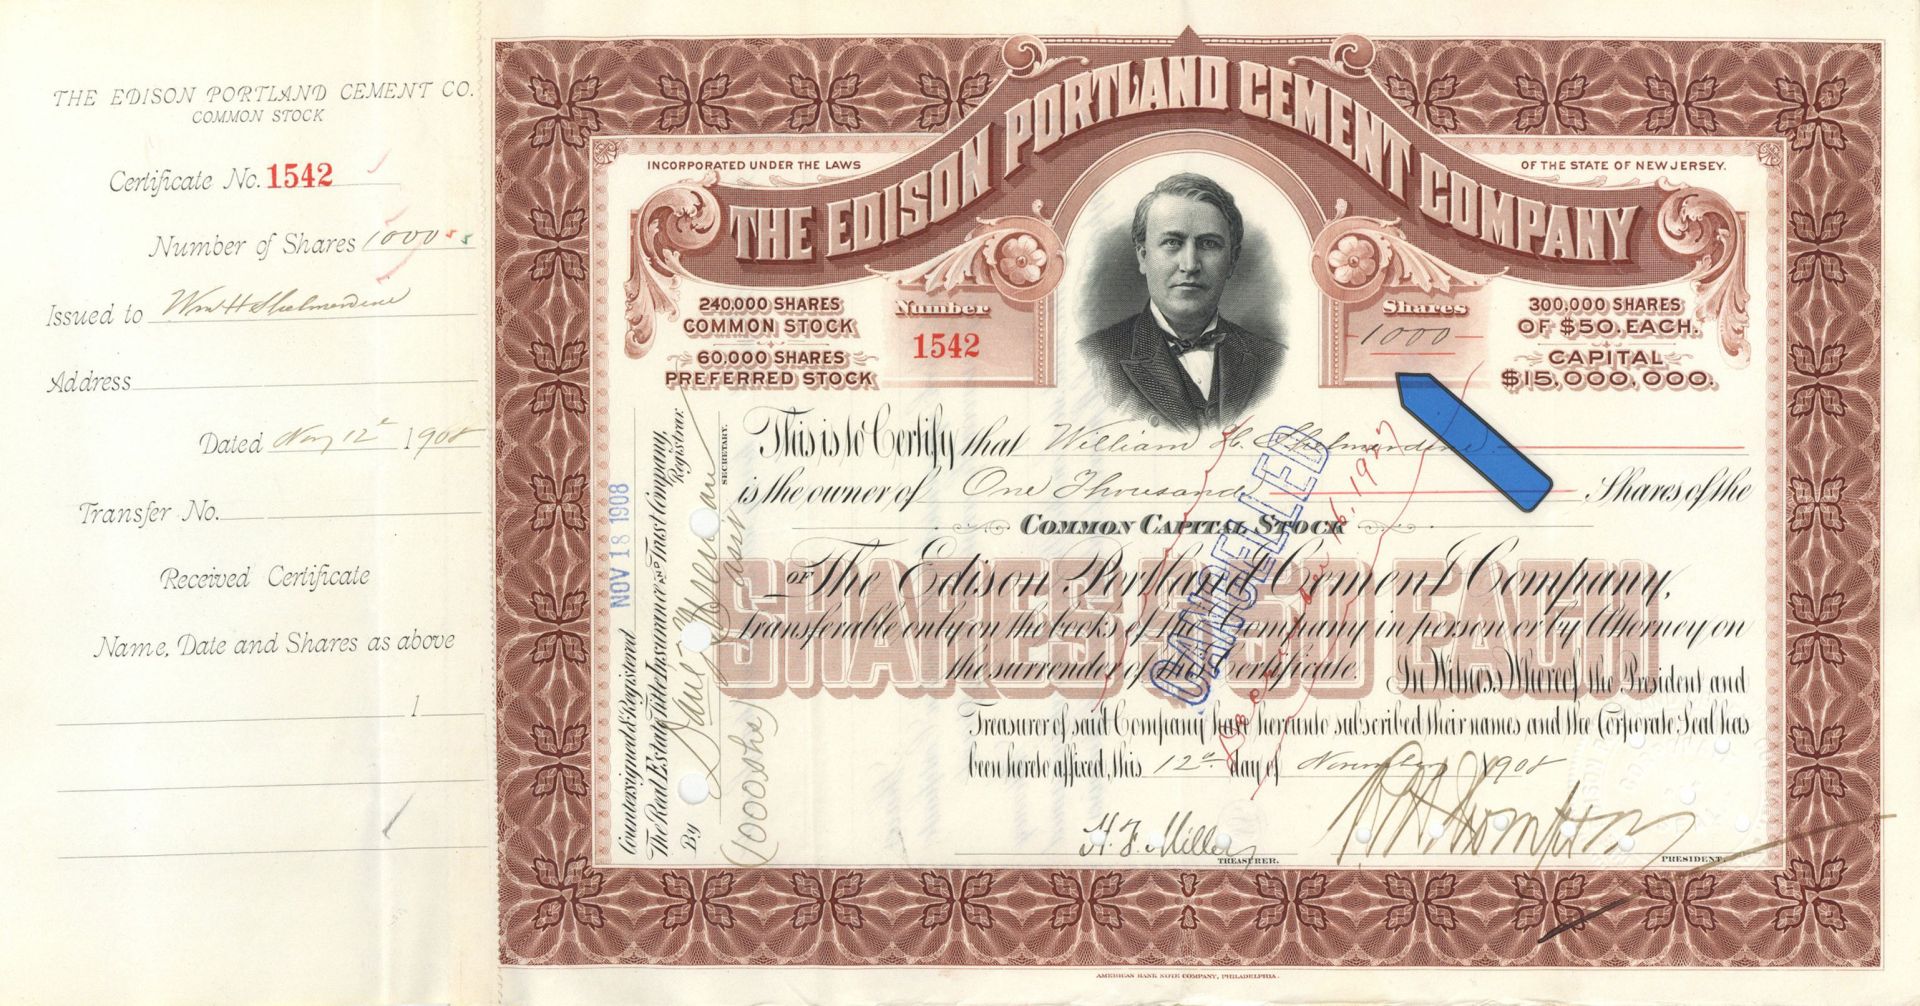 THE EDISON PORTLAND CEMENT CO.
COMMON STOCK
Certificate No. 1542
Number of Shares 1000
Issued to Wm H Shelmerdine
Address
Dated Nov 12th 1908
Transfer No.
Received Certificate
Name, Date and Shares as above
1
INCORPORATED UNDER THE LAWS
OF THE STATE OF NEW JERSEY.
THE EDISON PORTLAND CEMENT COMPANY
240,000 SHARES
COMMON STOCK
60,000 SHARES
PREFERRED STOCK
Number
1542
Shares
1000
300,000 SHARES
OF $50. EACH.
CAPITAL
$15,000,000.
This is to Certify that William H. Shelmerdine
is the owner of One Thousand Shares of the
COMMON CAPITAL STOCK
OF The Edison Portland Cement Company,
SHARES $50 EACH
transferable only on the books of the Company in person or by Attorney on
the surrender of this Certificate. In Witness Whereof the President and
Treasurer of said Company have hereunto subscribed their names and the Corporate Seal has
been hereto affixed, this 12th day of November 1908
H. F. Miller
TREASURER.
PRESIDENT.
CANCELLED
NOV 18 1908
Countersigned & Registered
The Real Estate Title Insurance AND Trust Company,
Registrar.
By
SECRETARY.
(1000 shs)
AMERICAN BANK NOTE COMPANY, PHILADELPHIA.